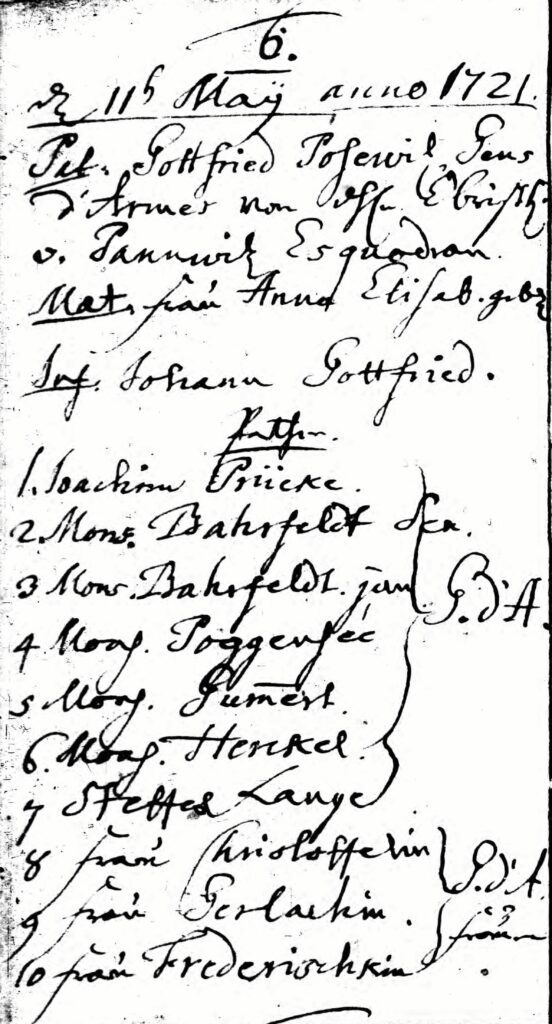 6.
d 11t Maÿ anno 1721.
Pat. Gottfried Posewitz Gens
d'Armes von
v. Pannwitz Esquadron.
Mat. frau Anna Elisab. geb
Inf. Johann Gottfried.
Pathen.
1. Joachim Prücke.
2. Mons. Bahrfeldt Sen.
3 Mons. Bahrfeldt. jun
G. d'A.
4 Mons. Poggensee
5 Mons. Gumert.
6. Mons. Henckel.
7 Steffen Lange
8 frau Christoffelin
G. d'A.
9 frau Gerlachin.
frauen
10 frau Frederischkin